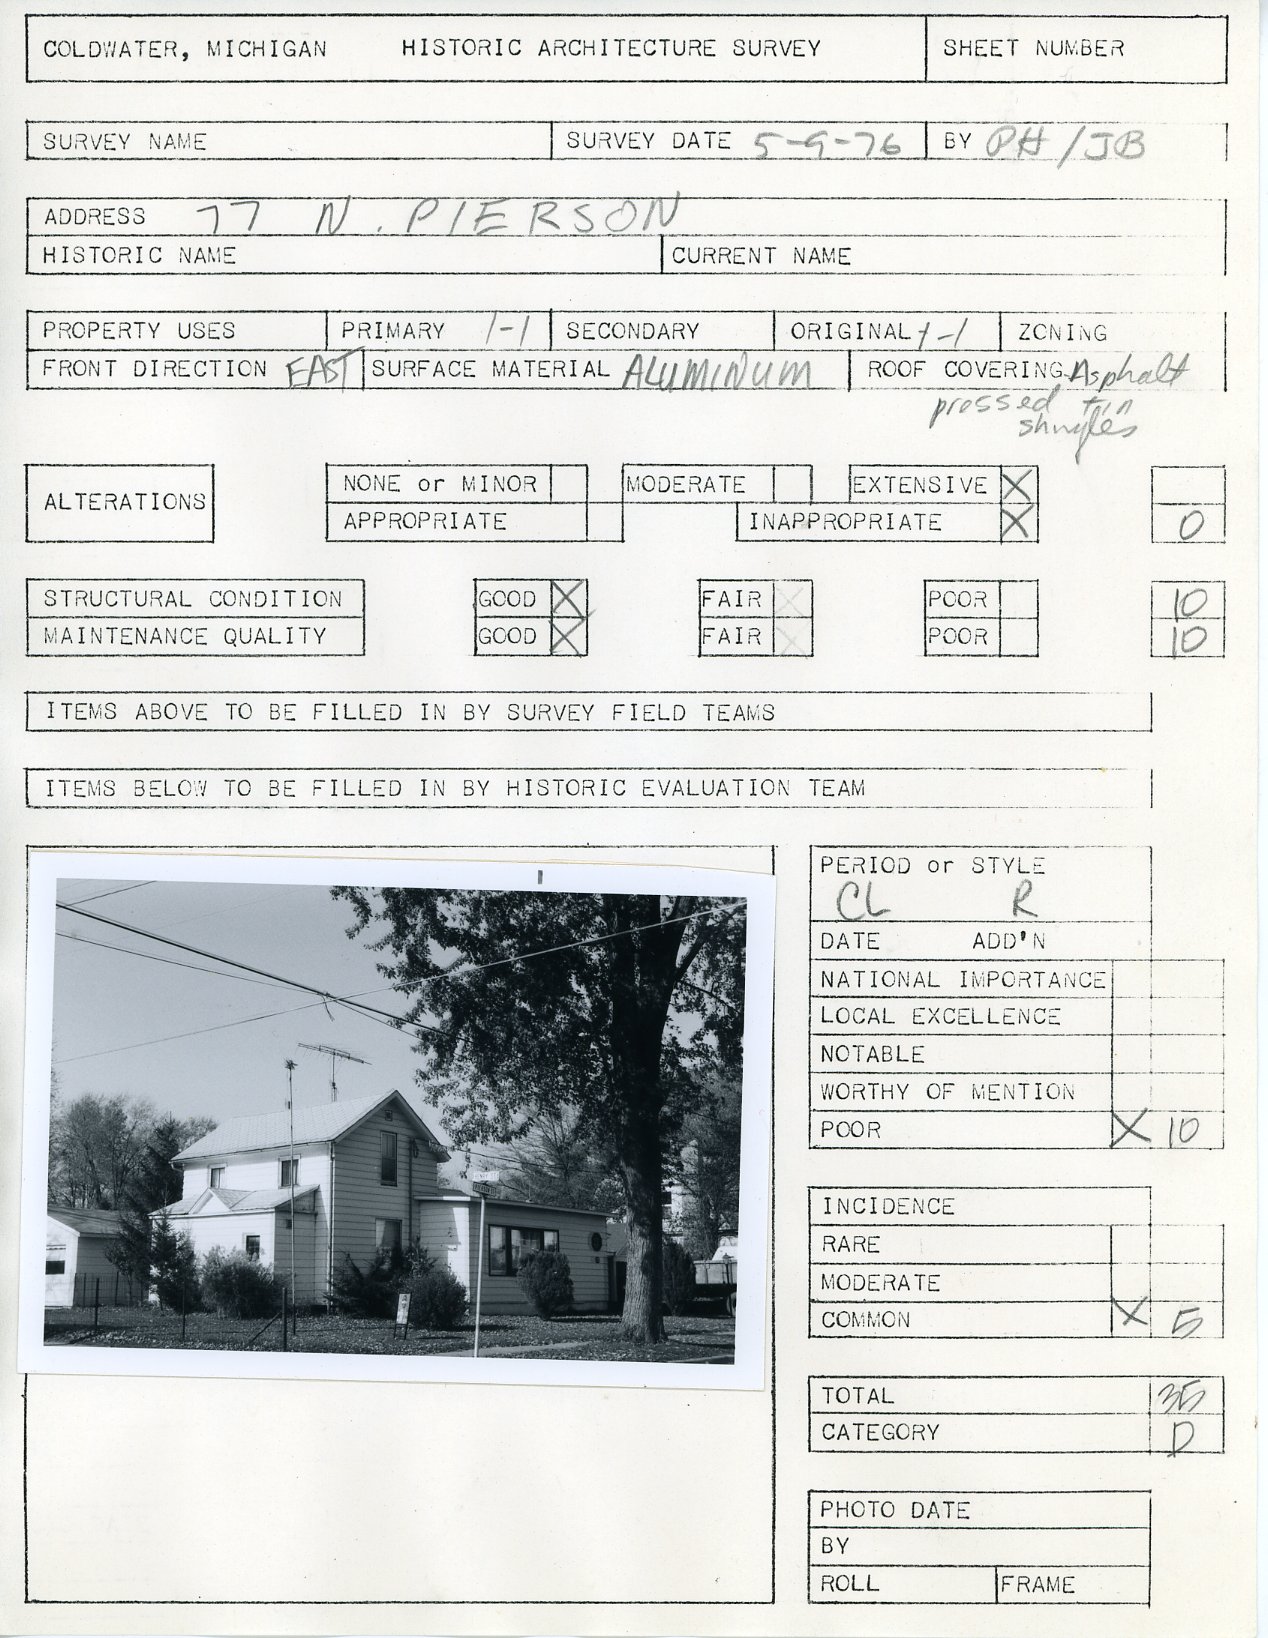 COLDWATER, MICHIGAN HISTORIC ARCHITECTURE SURVEY SHEET NUMBER
SURVEY NAME SURVEY DATE 5-9-76 BY PH/JB
ADDRESS 77 N. PIERSON
HISTORIC NAME CURRENT NAME
PROPERTY USES PRIMARY 1-1 SECONDARY ORIGINAL 1-1 ZONING
FRONT DIRECTION EAST SURFACE MATERIAL ALUMINUM ROOF COVERING Asphalt
pressed tin
shingles
ALTERATIONS NONE or MINOR MODERATE EXTENSIVE X
APPROPRIATE INAPPROPRIATE X 0
STRUCTURAL CONDITION GOOD X FAIR X POOR 10
MAINTENANCE QUALITY GOOD X FAIR X POOR 10
ITEMS ABOVE TO BE FILLED IN BY SURVEY FIELD TEAMS
ITEMS BELOW TO BE FILLED IN BY HISTORIC EVALUATION TEAM
PERIOD or STYLE
CL R
DATE ADD'N
NATIONAL IMPORTANCE
LOCAL EXCELLENCE
NOTABLE
WORTHY OF MENTION
POOR X 10
INCIDENCE
RARE
MODERATE
COMMON X 5
TOTAL 35
CATEGORY D
PHOTO DATE
BY
ROLL FRAME